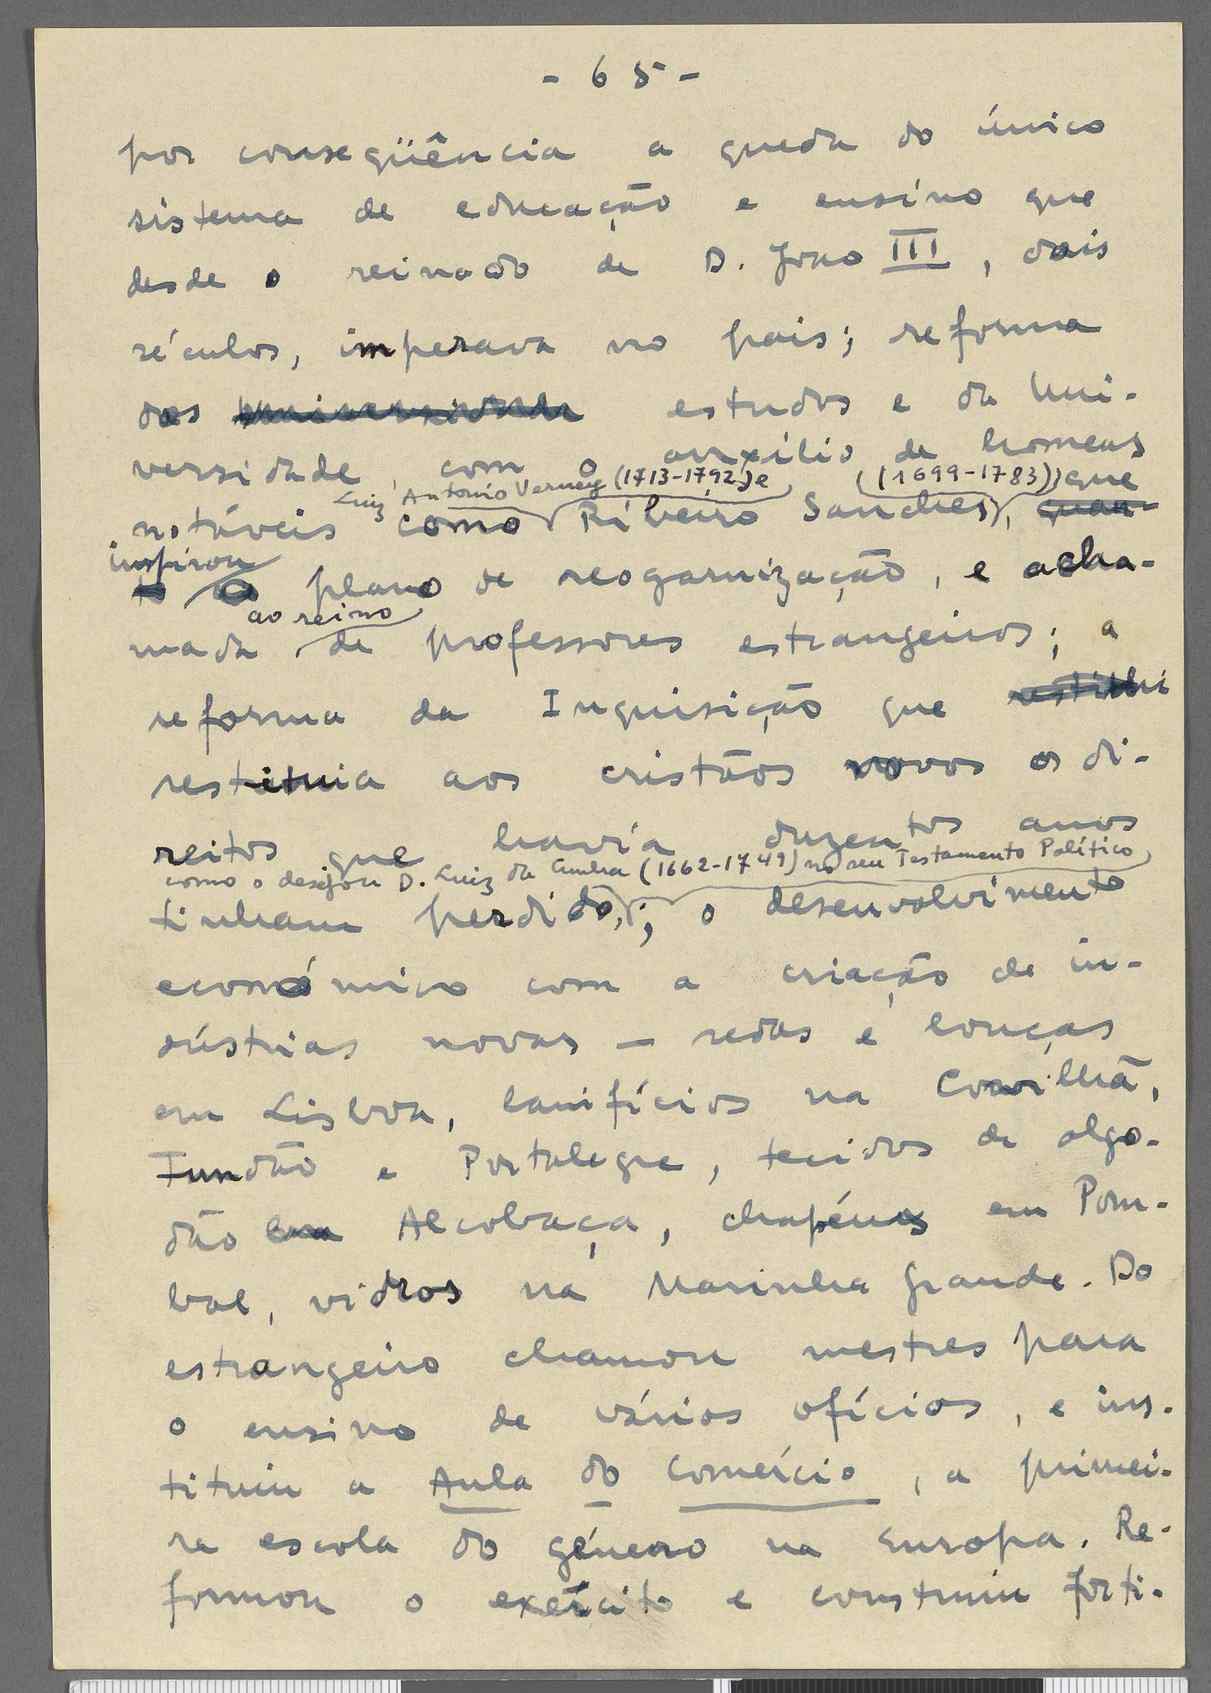 - 65 -
por conseqüência a queda do único
sistema de educação e ensino que
desde o reinado de D. João III, dois
séculos, imperava no pais; reforma
dos Universidade estudos e da Uni-
versidade, com o auxílio de homens
Luiz Antonio Verney (1713-1792) e (1699-1783)) que
notáveis como Ribeiro Sanches, quan-
inspirou
to o plano de reogarnização, e acha-
ao reino
mada de professores estrangeiros; a
reforma da Inquisição que restitui
restituia aos cristãos novos os di-
reitos que havia duzentos anos
como o desejou D. Luiz da Cunha (1662-1749) no seu Testamento Político
tinham perdido; o desenvolvimento
económico com a criação de in-
dústrias novas — sedas e louças
em Lisboa, lanifícios na Covilhã,
Fundão e Portalegre, tecidos de algo-
dão em Alcobaça, chapéus em Pom-
bal, vidros na Marinha Grande. Do
estrangeiro chamou mestres para
o ensino de vários ofícios, e ins-
tituiu a Aula do Comércio, a primei-
ra escola do género na Europa. Re-
formou o exército e construiu forti-